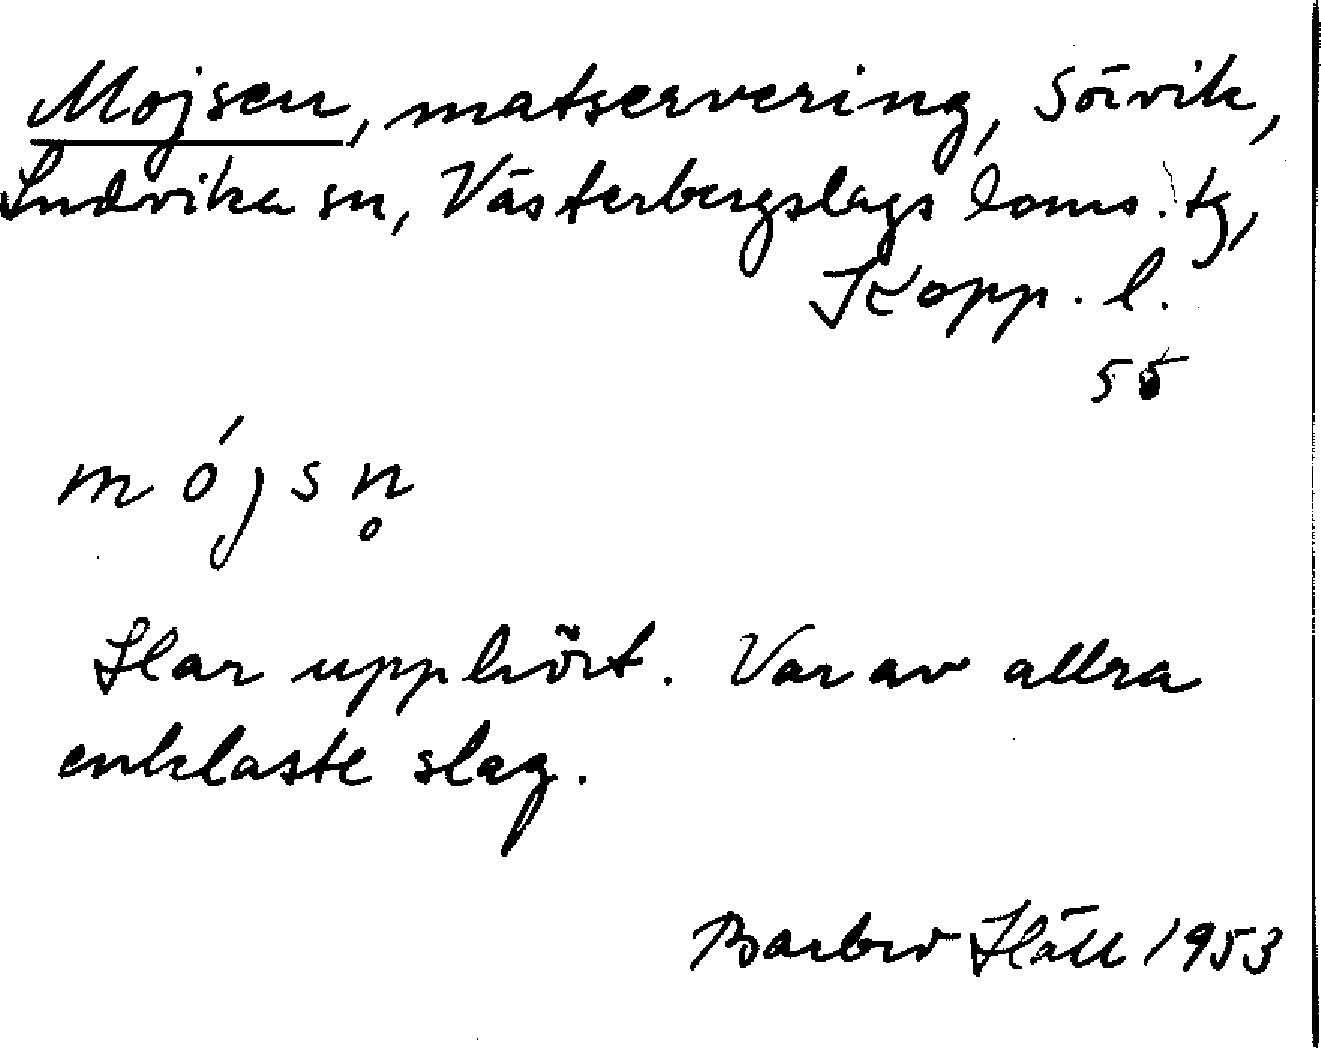 Mojsen, matservering, Sörvik,
Ludvika sn, Västerbergslags doms. tg,
Kopp. l.
55
mójsn̥
Har upphört. Var av allra
enklaste slag.
Barbro Häll 1953